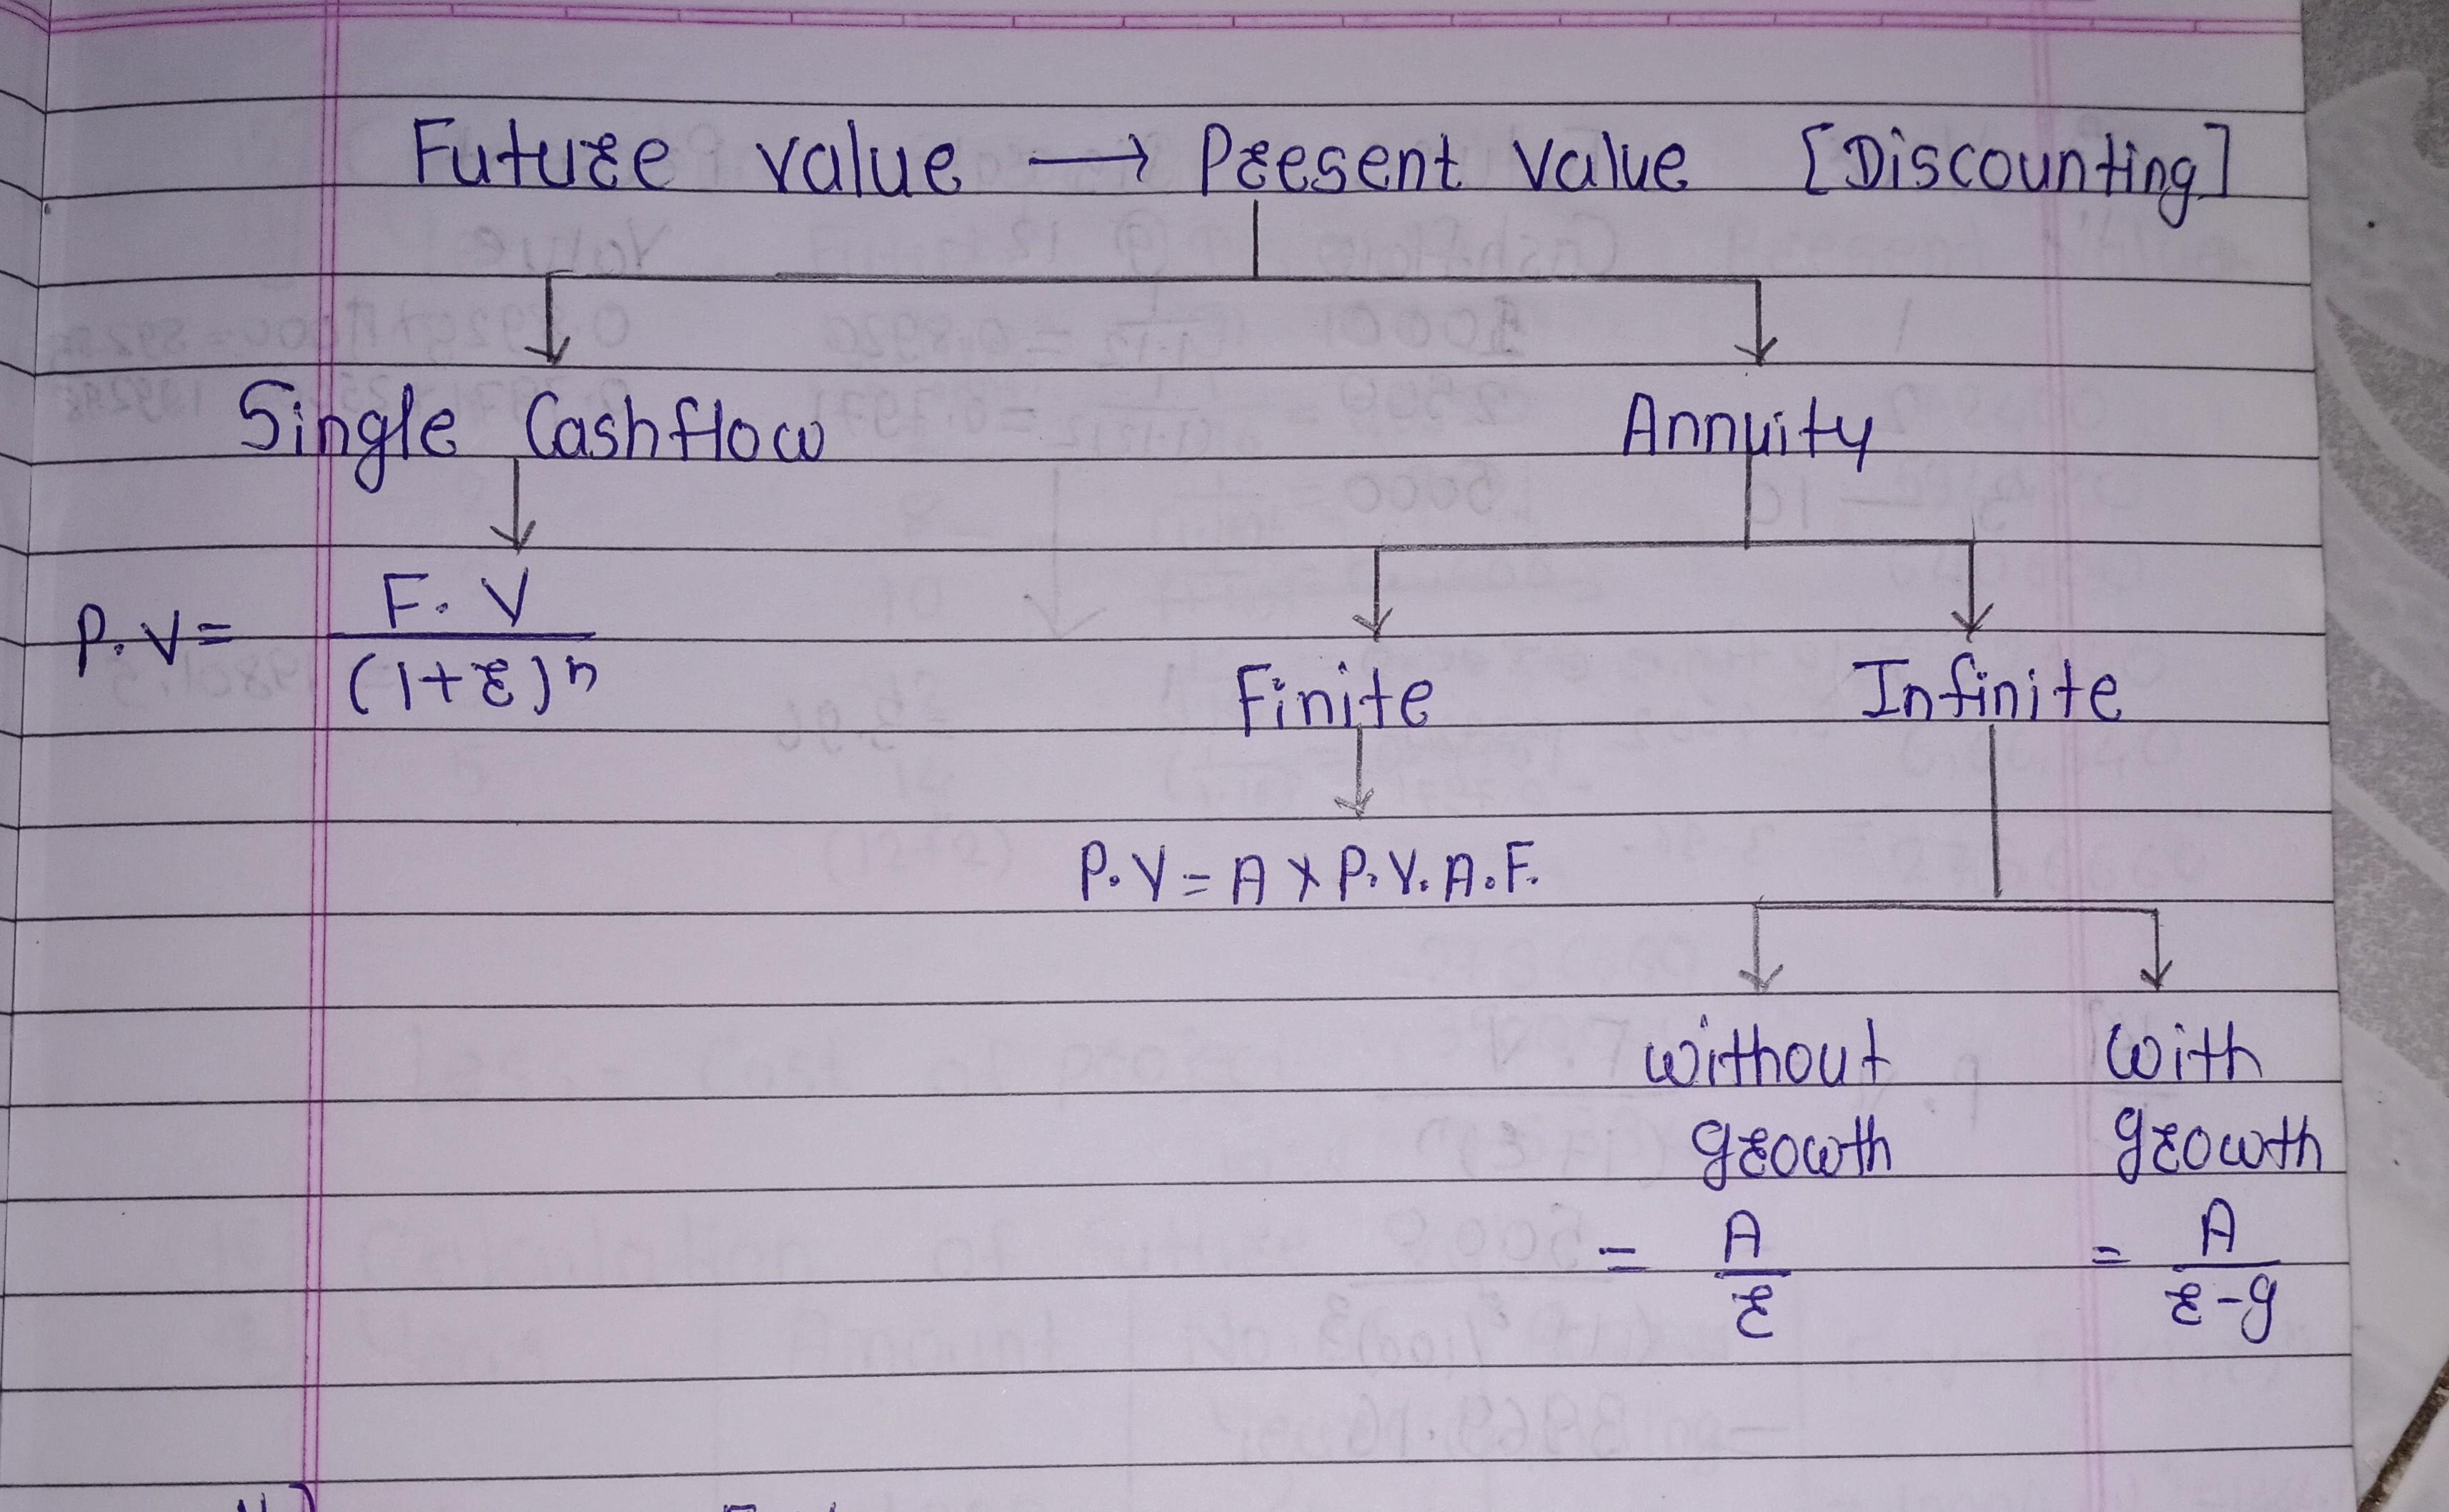 Future value → Present value [Discounting]
Single Cashflow
Annuity
P.V = F.V / (1+r)^n
Finite
Infinite
P.V = A × P.V.A.F.
without growth
= A / r
with growth
= A / r-g